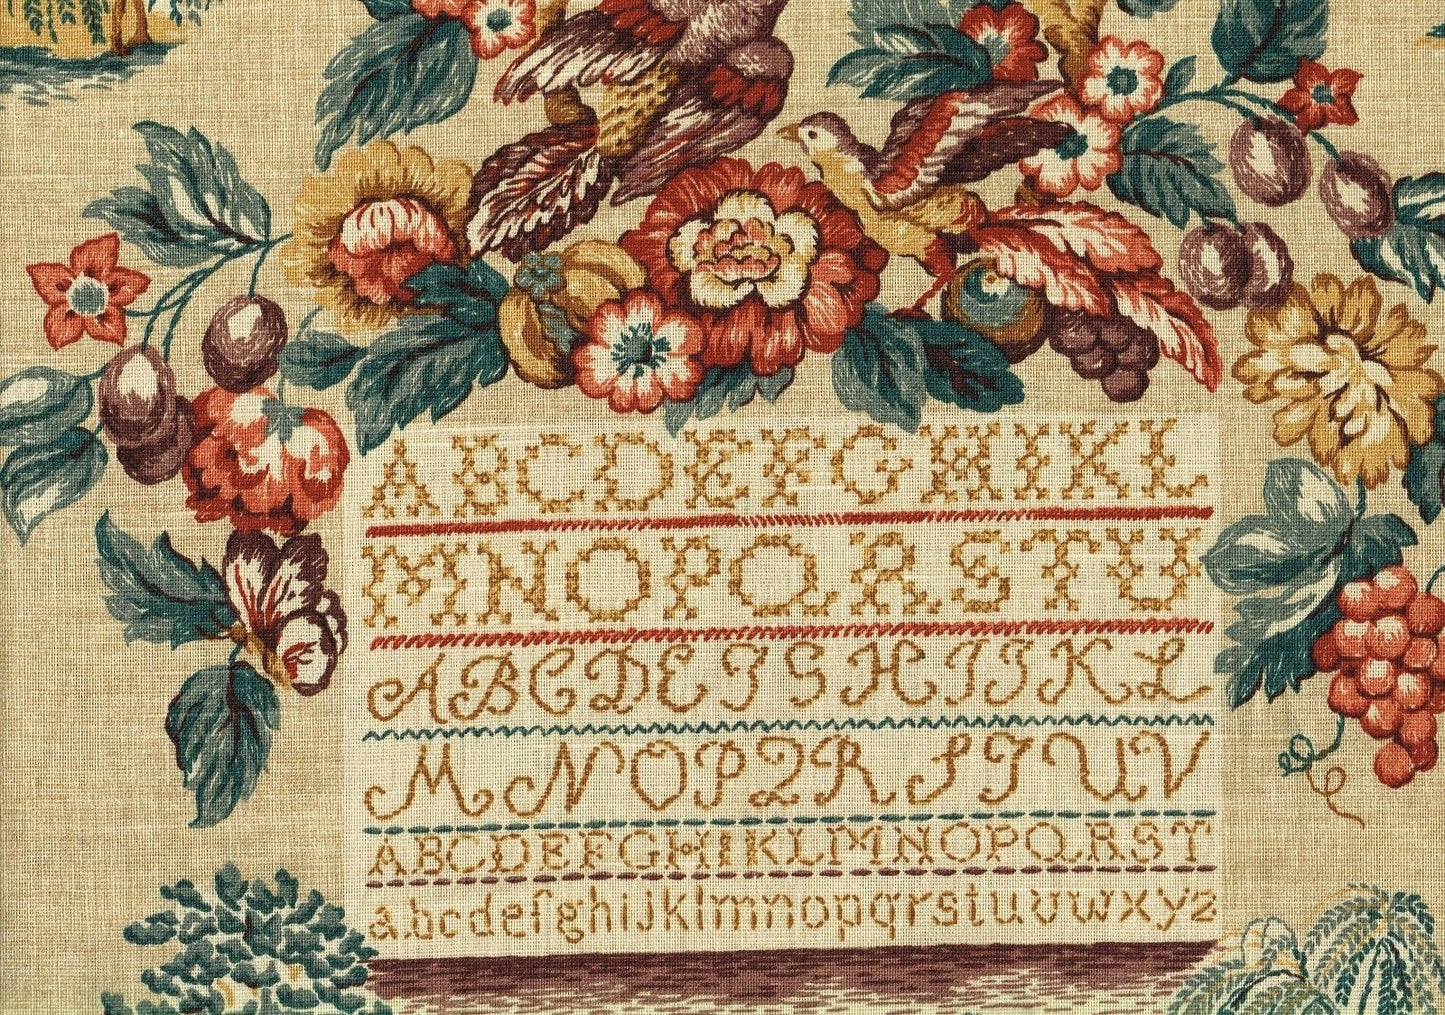 ABCDEFGHIKL
MNOPQRSTU
ABCDEFGHIJKL
MNOPQRSTUV
ABCDEFGHIKLMNOPQRST
abcdefghijklmnopqrstuvwxyz